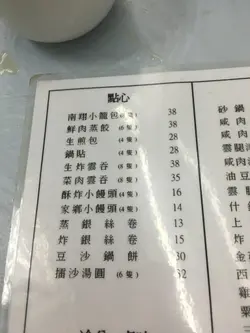 點心
南翔小龍包(6隻) 38
鮮肉蒸餃(6隻) 38
生煎包(4隻) 28
鍋貼(4隻) 28
生炸雲吞(6隻) 38
菜肉雲吞(6隻) 35
酥炸小饅頭(4隻) 16
家鄉小饅頭(4隻) 14
蒸銀絲卷 13
炸銀絲卷 15
豆沙鍋餅 30
擂沙湯圓(6隻) 32
砂鍋
咸肉
咸肉
雲腿
咸肉
油豆
雲
什
上
炸
金
西
雞
粟